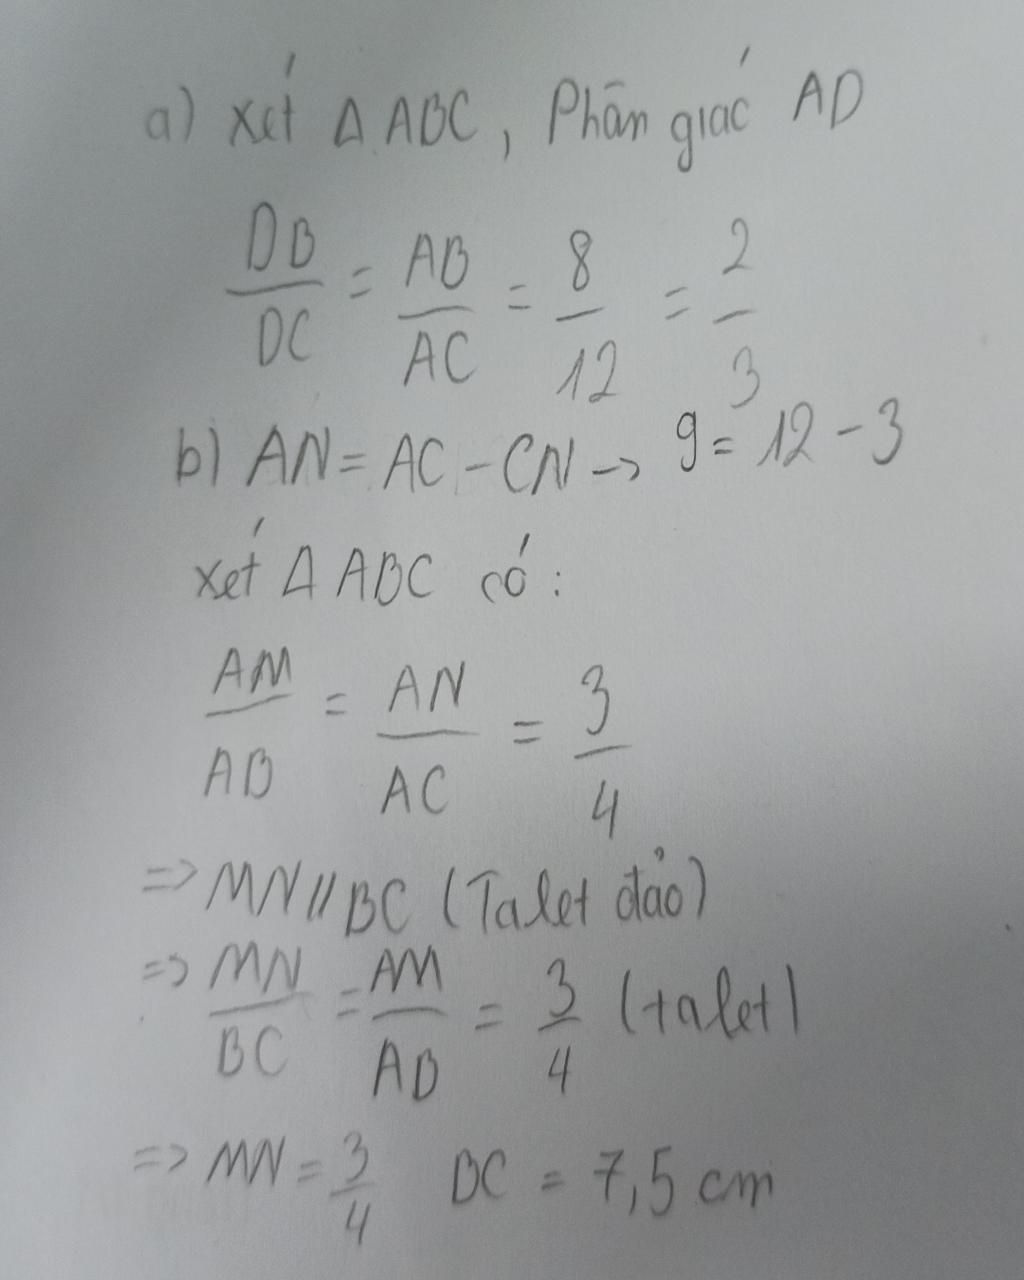 a) xét Δ ABC, Phân giác AD
DB/DC = AB/AC = 8/12 = 2/3
b) AN = AC - CN -> 9 = 12 - 3
xét Δ ABC có:
AM/AB = AN/AC = 3/4
=> MN // BC (Talet đảo)
=> MN/BC = AM/AB = 3/4 (talet)
=> MN = 3/4 BC = 7,5 cm